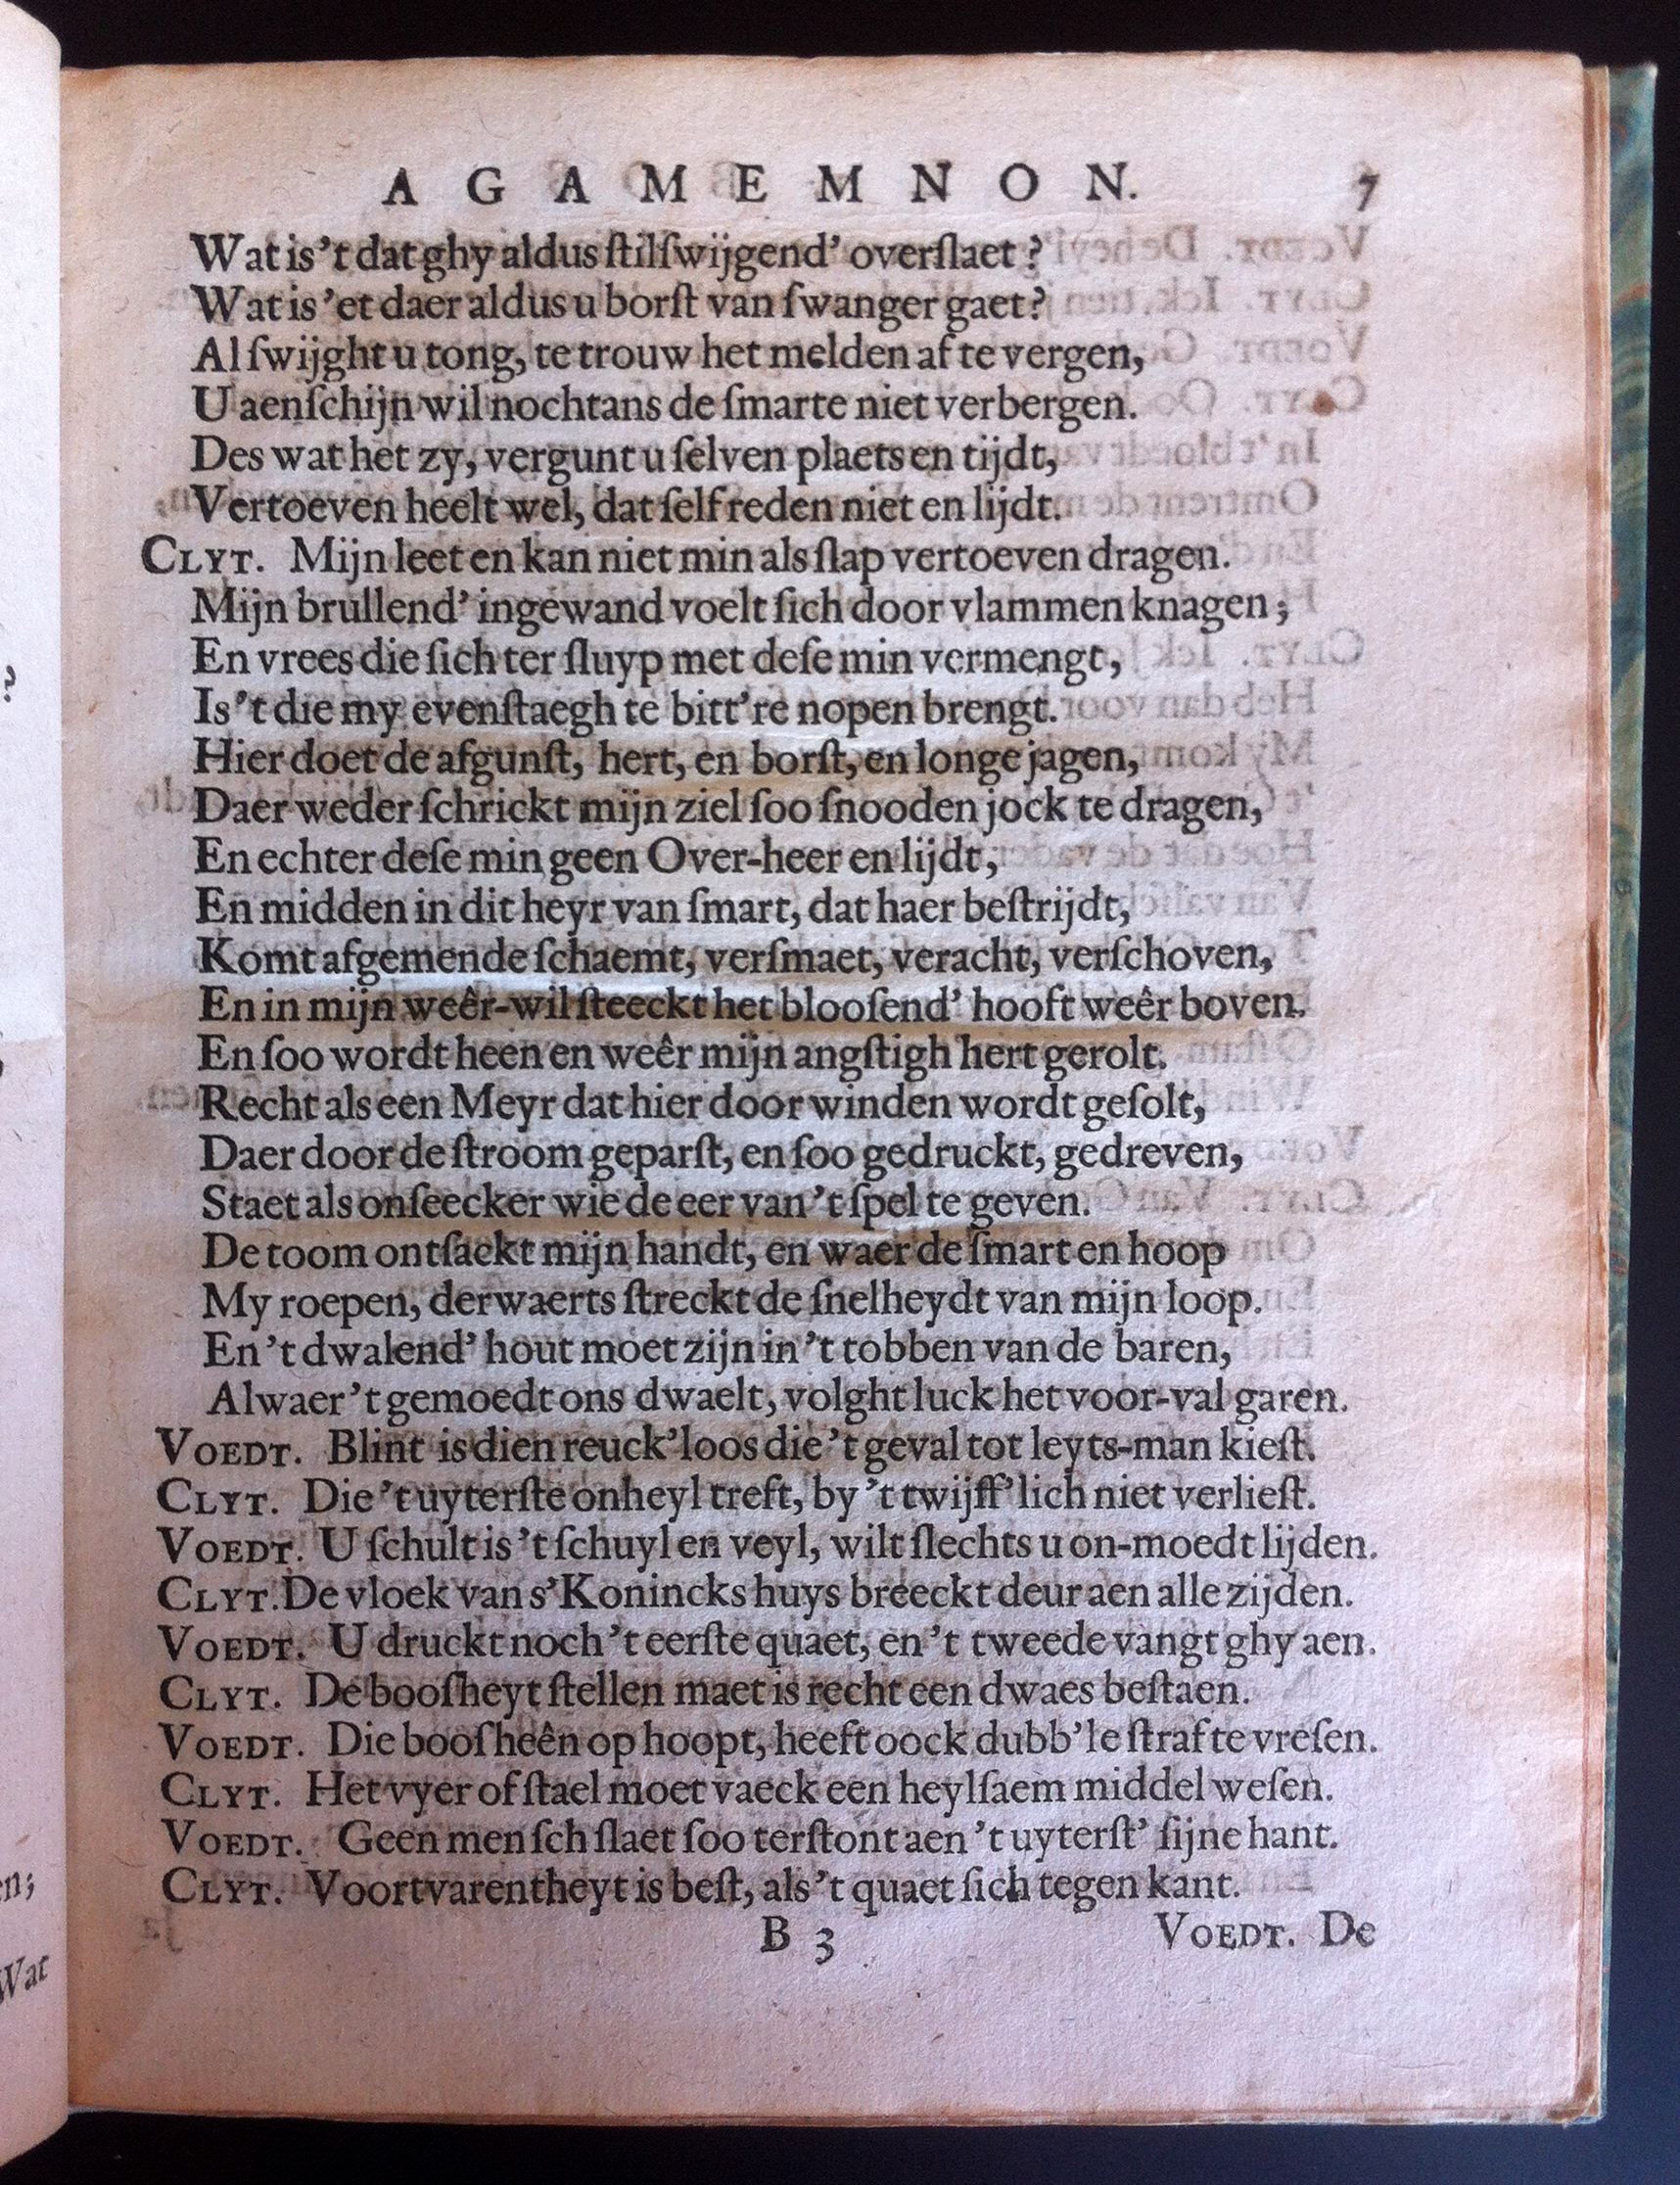 AGAMEMNON. 7
Wat is 't dat ghy aldus ſtilſwijgend' overſlaet?
Wat is 'et daer aldus u borſt van ſwanger gaet?
Al ſwijght u tong, te trouw het melden af te vergen,
U aenſchijn wil nochtans de ſmarte niet verbergen.
Des wat het zy, vergunt u ſelven plaets en tijdt,
Vertoeven heelt wel, dat ſelf reden niet en lijdt.
CLYT. Mijn leet en kan niet min als ſlap vertoeven dragen.
Mijn brullend' ingewand voelt ſich door vlammen knagen;
En vrees die ſich ter ſluyp met deſe min vermengt,
Is 't die my evenſtaegh te bitt're nopen brengt.
Hier doet de afgunſt, hert, en borſt, en longe jagen,
Daer weder ſchrickt mijn ziel ſoo ſnooden jock te dragen,
En echter deſe min geen Over-heer en lijdt,
En midden in dit heyr van ſmart, dat haer beſtrijdt,
Komt afgemende ſchaemt, verſmaet, veracht, verſchoven,
En in mijn weêr-wil ſteeckt het blooſend' hooft weêr boven.
En ſoo wordt heen en weêr mijn angſtigh hert gerolt.
Recht als een Meyr dat hier door winden wordt geſolt,
Daer door de ſtroom geparſt, en ſoo gedruckt, gedreven,
Staet als onſeecker wie de eer van 't ſpel te geven.
De toom ontſackt mijn handt, en waer de ſmart en hoop
My roepen, derwaerts ſtreckt de ſnelheydt van mijn loop.
En 't dwalend' hout moet zijn in 't tobben van de baren,
Alwaer 't gemoedt ons dwaelt, volght luck het voor-val garen.
VOEDT. Blint is dien reuck'loos die 't geval tot leyts-man kieſt.
CLYT. Die 't uyterſte onheyl treft, by 't twijff'lich niet verlieſt.
VOEDT. U ſchult is 't ſchuyl en veyl, wilt ſlechts u on-moedt lijden.
CLYT. De vloek van s'Konincks huys breeckt deur aen alle zijden.
VOEDT. U druckt noch 't eerſte quaet, en 't tweede vangt ghy aen.
CLYT. De booſheyt ſtellen maet is recht een dwaes beſtaen.
VOEDT. Die booſheên op hoopt, heeft oock dubb'le ſtraf te vreſen.
CLYT. Het vyer of ſtael moet vaeck een heylſaem middel weſen.
VOEDT. Geen menſch ſlaet ſoo terſtont aen 't uyterſt' ſijne hant.
CLYT. Voortvarentheyt is beſt, als 't quaet ſich tegen kant.
B 3 VOEDT. De